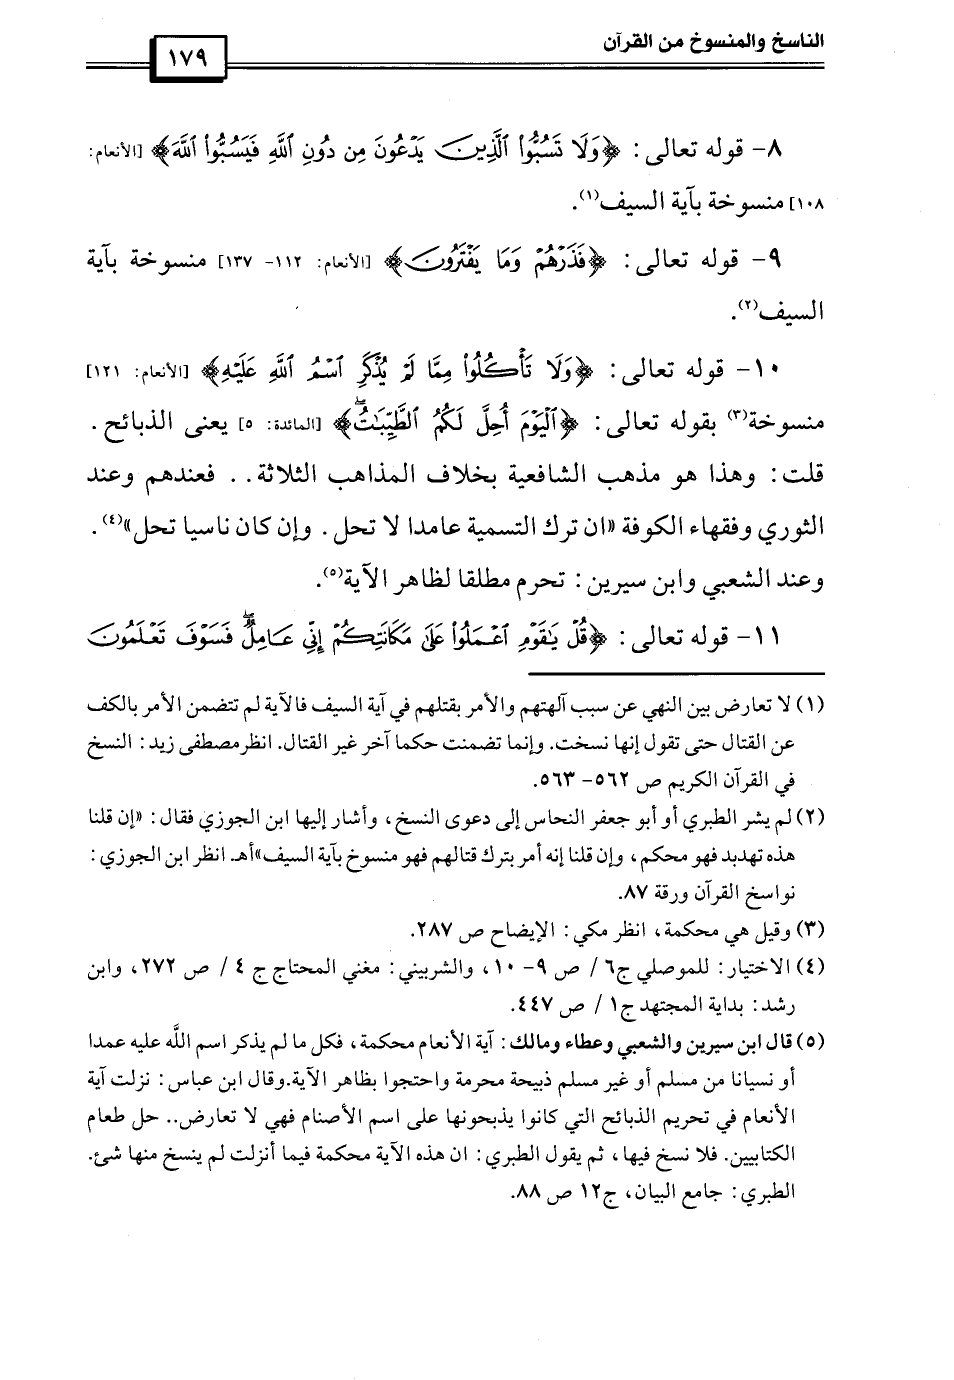 الناسخ والمنسوخ من القرآن
١٧٩
٨- قوله تعالى: ﴿وَلَا تَسُبُّوا۟ ٱلَّذِينَ يَدْعُونَ مِن دُونِ ٱللَّهِ فَيَسُبُّوا۟ ٱللَّهَ﴾ [الأنعام:
١٠٨] منسوخة بآية السيف(١).
٩- قوله تعالى: ﴿فَذَرْهُمْ وَمَا يَفْتَرُونَ﴾ [الأنعام: ١١٢- ١٣٧] منسوخة بآية
السيف(٢).
١٠- قوله تعالى: ﴿وَلَا تَأْكُلُوا۟ مِمَّا لَمْ يُذْكَرِ ٱسْمُ ٱللَّهِ عَلَيْهِ﴾ [الأنعام: ١٢١]
منسوخة(٣) بقوله تعالى: ﴿ٱلْيَوْمَ أُحِلَّ لَكُمُ ٱلطَّيِّبَٰتُۖ﴾ [المائدة: ٥] يعنى الذبائح.
قلت: وهذا هو مذهب الشافعية بخلاف المذاهب الثلاثة.. فعندهم وعند
الثوري وفقهاء الكوفة «ان ترك التسمية عامدا لا تحل. وإن كان ناسيا تحل»(٤).
وعند الشعبي وابن سيرين: تحرم مطلقا لظاهر الآية(٥).
١١- قوله تعالى: ﴿قُلْ يَٰقَوْمِ ٱعْمَلُوا۟ عَلَىٰ مَكَانَتِكُمْ إِنِّى عَامِلٌۖ فَسَوْفَ تَعْلَمُونَ
(١) لا تعارض بين النهي عن سبب آلهتهم والأمر بقتلهم في آية السيف فالآية لم تتضمن الأمر بالكف
عن القتال حتى تقول إنها نسخت. وإنما تضمنت حكما آخر غير القتال. انظرمصطفى زيد: النسخ
في القرآن الكريم ص ٥٦٢- ٥٦٣.
(٢) لم يشر الطبري أو أبو جعفر النحاس إلى دعوى النسخ، وأشار إليها ابن الجوزي فقال: «إن قلنا
هذه تهديد فهو محكم، وإن قلنا إنه أمر بترك قتالهم فهو منسوخ بآية السيف»أهـ. انظر ابن الجوزي:
نواسخ القرآن ورقة ٨٧.
(٣) وقيل هي محكمة، انظر مكي: الإيضاح ص ٢٨٧.
(٤) الاختيار: للموصلي ج٦/ ص ٩- ١٠، والشربيني: مغني المحتاج ج ٤/ ص ٢٧٢، وابن
رشد: بداية المجتهد ج١/ ص ٤٤٧.
(٥) قال ابن سيرين والشعبي وعطاء ومالك: آية الأنعام محكمة، فكل ما لم يذكر اسم اللَّه عليه عمدا
أو نسيانا من مسلم أو غير مسلم ذبيحة محرمة واحتجوا بظاهر الآية.وقال ابن عباس: نزلت آية
الأنعام في تحريم الذبائح التي كانوا يذبحونها على اسم الأصنام فهي لا تعارض.. حل طعام
الكتابيين. فلا نسخ فيها، ثم يقول الطبري: ان هذه الآية محكمة فيما أنزلت لم ينسخ منها شئ.
الطبري: جامع البيان، ج١٢ ص ٨٨.